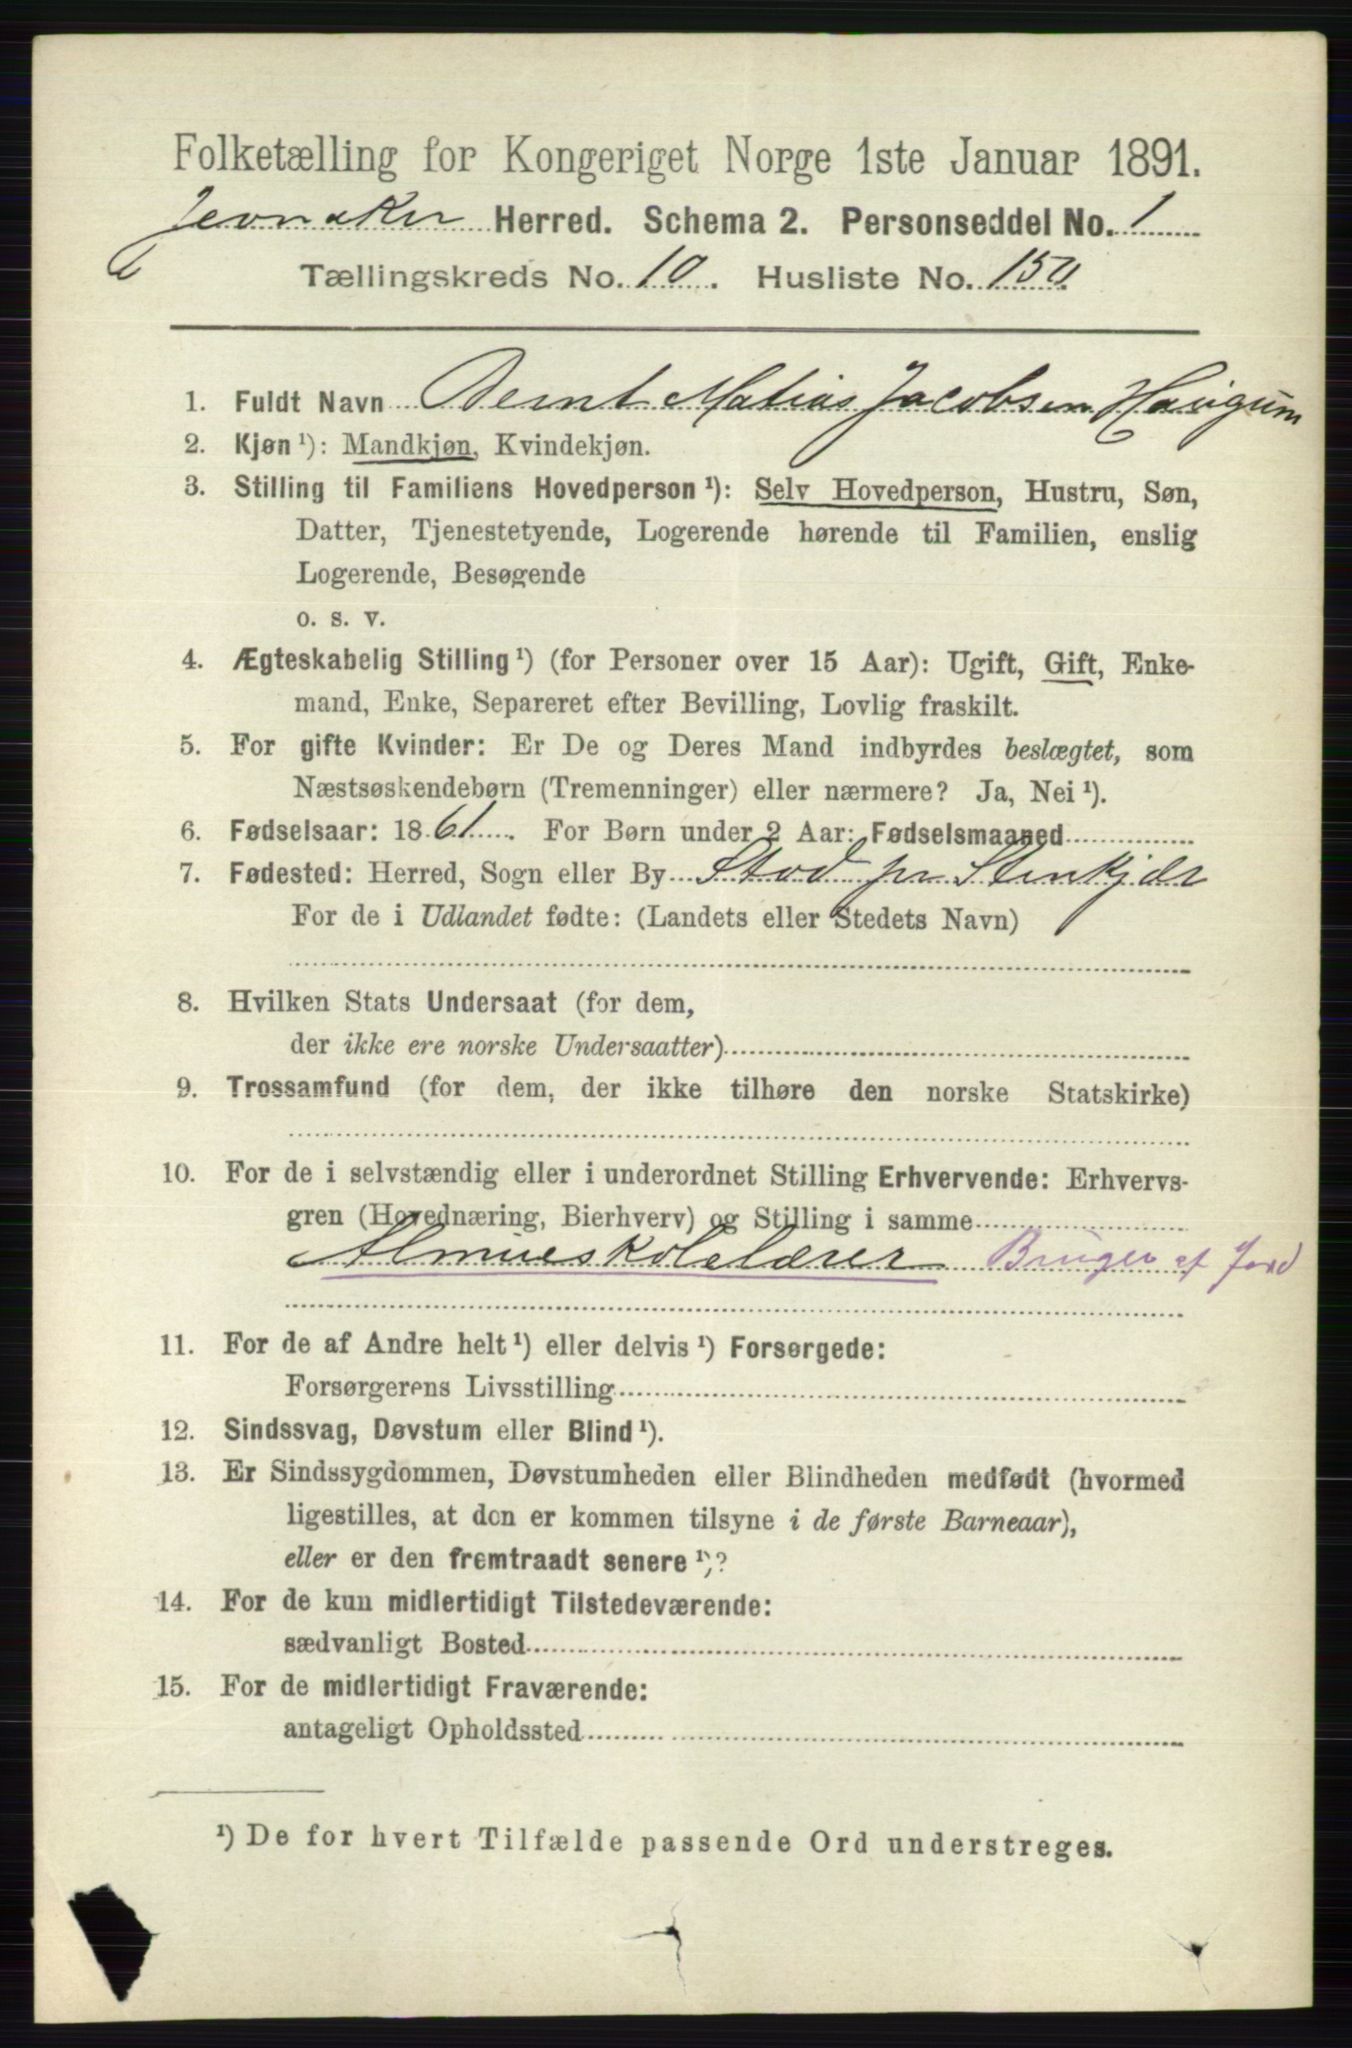 Folketælling for Kongeriget Norge 1ste Januar 1891.
Jevnaker Herred. Schema 2. Personseddel No. 1
Tællingskreds No. 10. Husliste No. 150.
1. Fuldt Navn Bernt Matias Jacobsen Haugum
2. Kjøn ¹): Mandkjøn, Kvindekjøn.
3. Stilling til Familiens Hovedperson ¹): Selv Hovedperson, Hustru, Søn,
Datter, Tjenestetyende, Logerende hørende til Familien, enslig
Logerende, Besøgende
o. s. v.
4. Ægteskabelig Stilling ¹) (for Personer over 15 Aar): Ugift, Gift, Enke-
mand, Enke, Separeret efter Bevilling, Lovlig fraskilt.
5. For gifte Kvinder: Er De og Deres Mand indbyrdes beslægtet, som
Næstsøskendebørn (Tremenninger) eller nærmere? Ja, Nei ¹).
6. Fødselsaar: 1861. For Børn under 2 Aar: Fødselsmaaned
7. Fødested: Herred, Sogn eller By Stod pr Stenkjær
For de i Udlandet fødte: (Landets eller Stedets Navn)
8. Hvilken Stats Undersaat (for dem,
der ikke ere norske Undersaatter)
9. Trossamfund (for dem, der ikke tilhøre den norske Statskirke)
10. For de i selvstændig eller i underordnet Stilling Erhvervende: Erhvervs-
gren (Hovednæring, Bierhverv) og Stilling i samme
Almueskolelærer Bruger af Jord
11. For de af Andre helt ¹) eller delvis ¹) Forsørgede:
Forsørgerens Livsstilling
12. Sindssvag, Døvstum eller Blind ¹).
13. Er Sindssygdommen, Døvstumheden eller Blindheden medfødt (hvormed
ligestilles, at den er kommen tilsyne i de første Barneaar),
eller er den fremtraadt senere ¹)?
14. For de kun midlertidigt Tilstedeværende:
sædvanligt Bosted
15. For de midlertidigt Fraværende:
antageligt Opholdssted
¹) De for hvert Tilfælde passende Ord understreges.